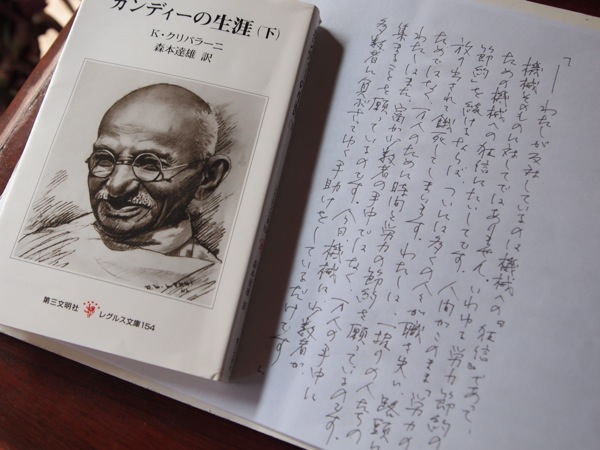 ガンディーの生涯(下)
K・クリパラーニ
森本達雄 訳
第三文明社
レグルス文庫154
「── わたしが反対しているのは、機械への"狂信"であって、
機械そのものに対してではありません。いわゆる労力節約の
ための機械への狂信にたいしてです。人間がこのまま労力の
節約を続けるならば、ついには多くの人々が職を失い、路頭に
放り出され、餓死してしまいます。わたしは、一握りの人たちの
ためではなく、万人のために時間と労力の節約を願っているのです。
わたしはまた、富が少数者の手中ではなく、万人の手中に
集まることを願っているのです。今日機械は、少数者が、
多数者に負ぶさってゆく手助けをしているだけです 」